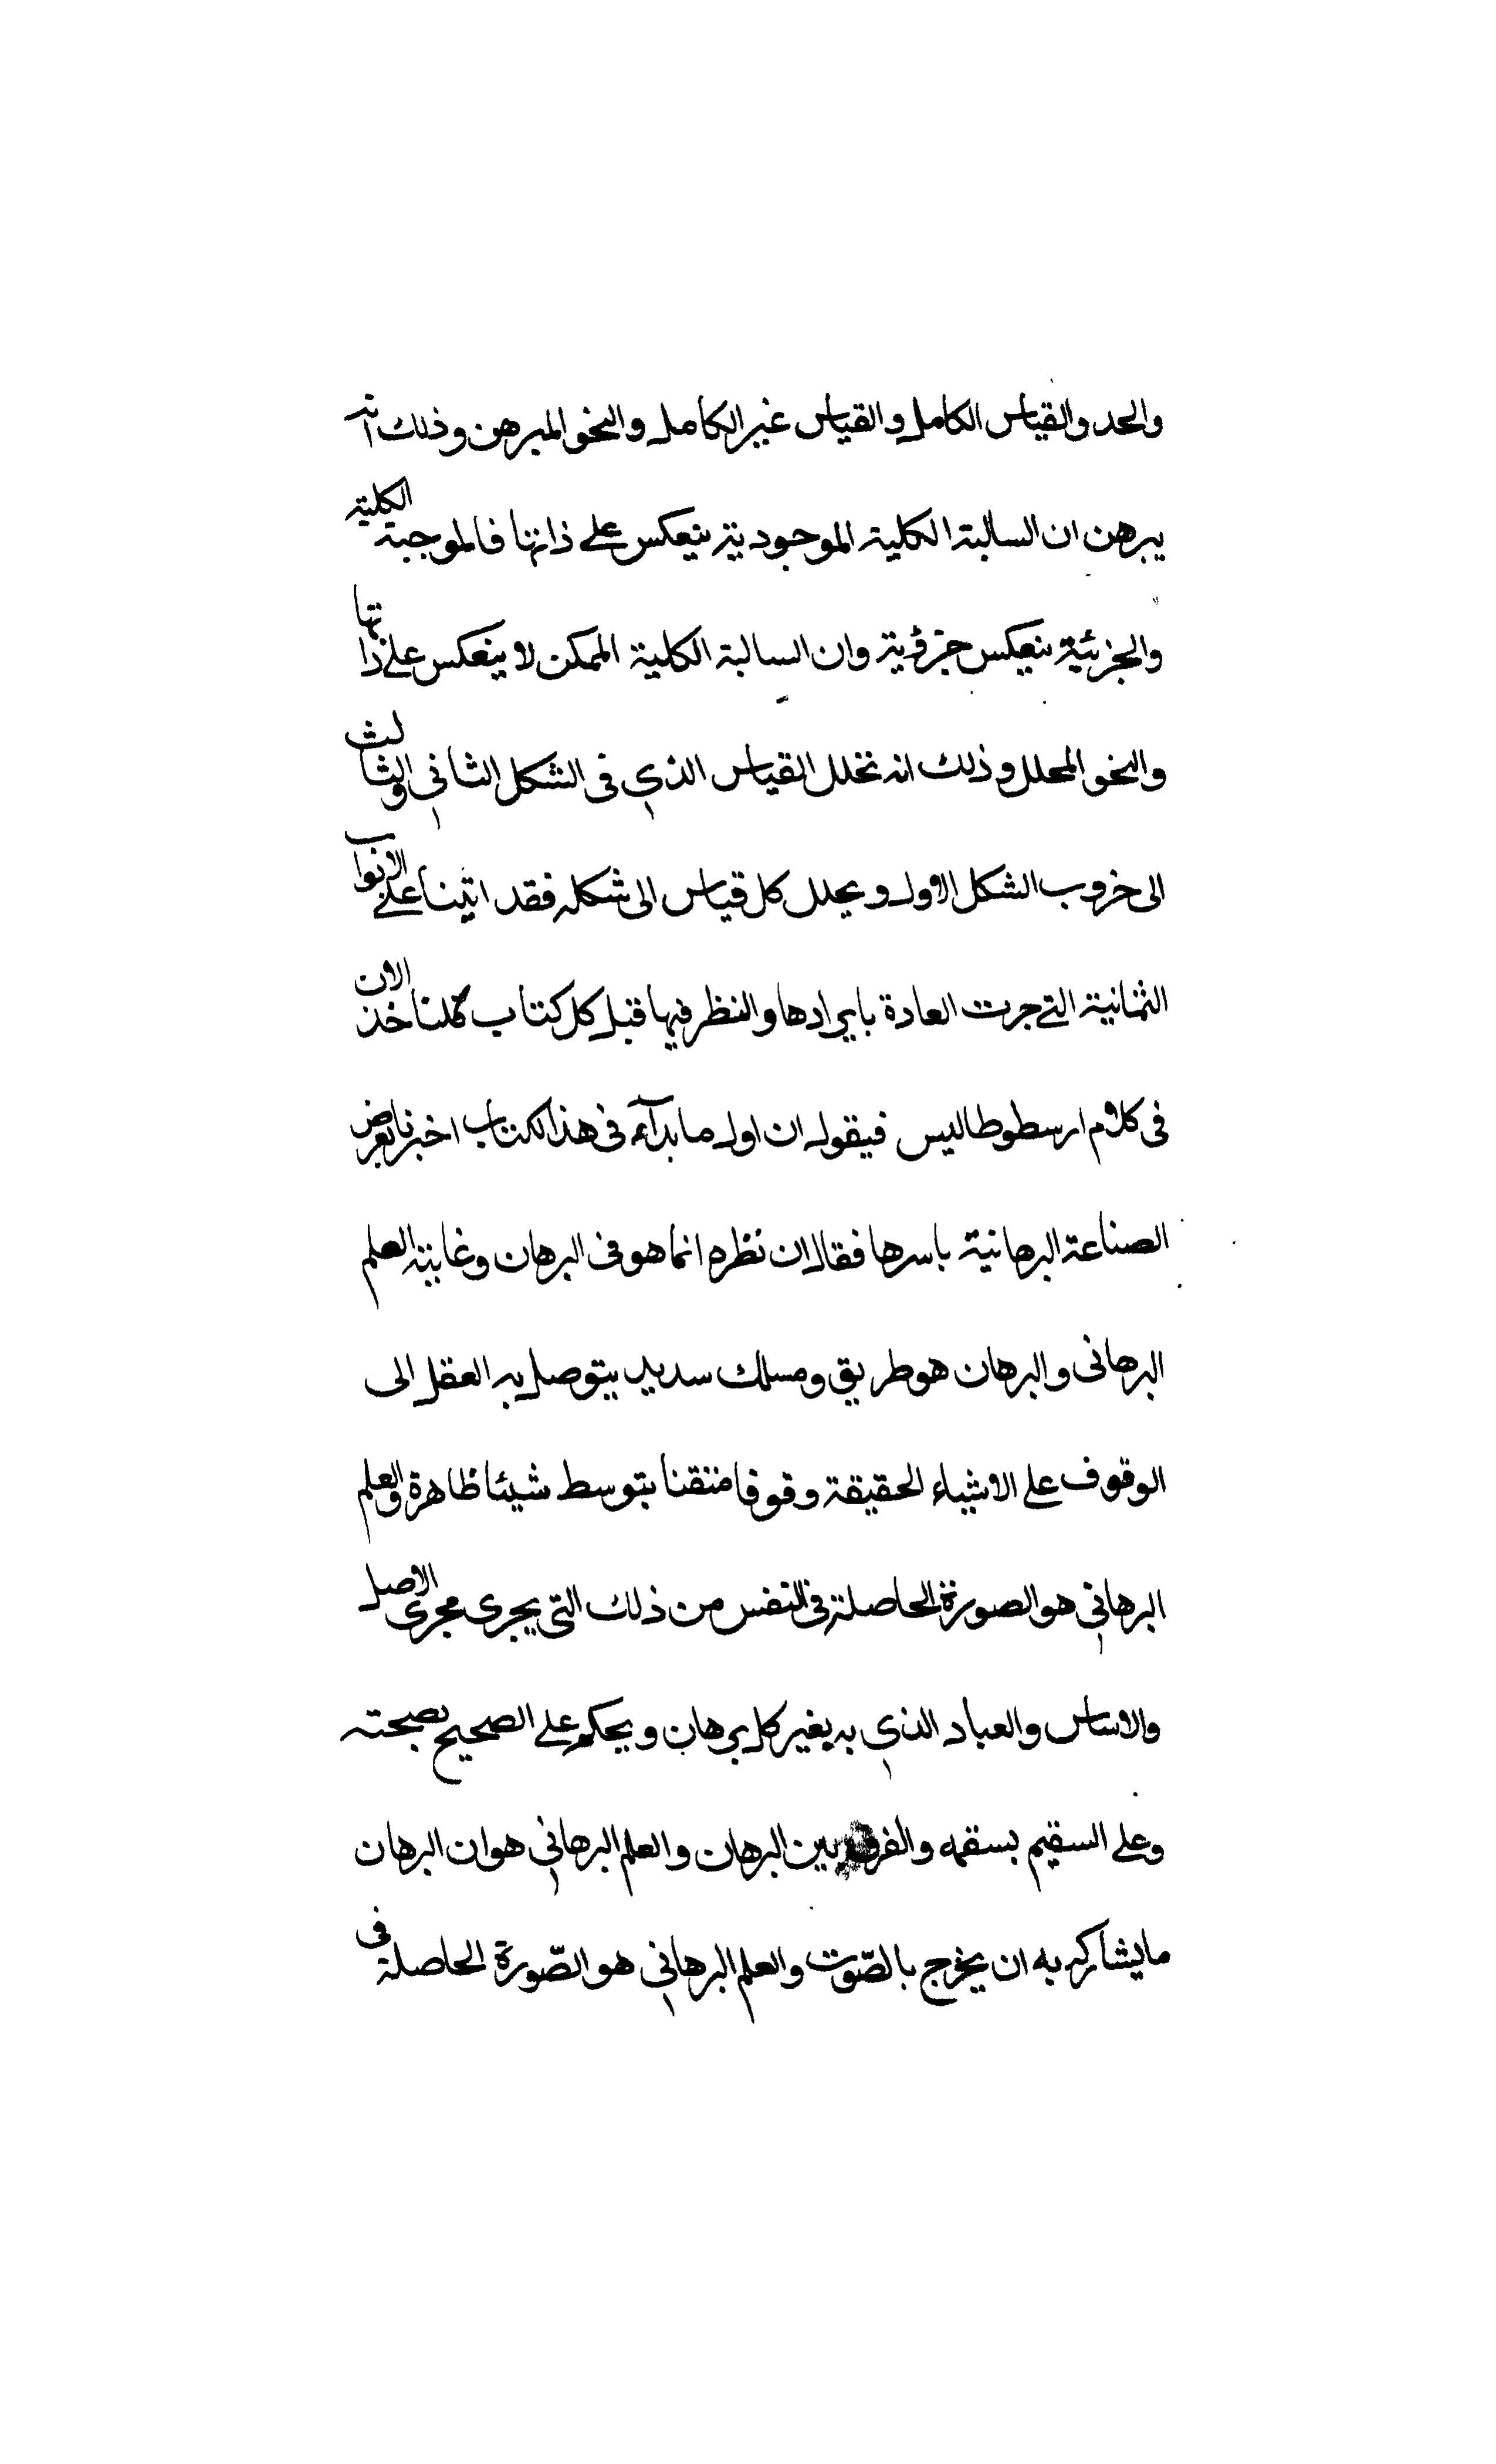 والحد والقياس الكامل والقياس غير الكامل والنحو المبرهن وذلك انه
يبرهن ان السالبة الكلية الموجودية ينعكس على ذاتها فالموجبة الكلية
والجزئية ينعكس جزؤية وان السالبة الكلية الممكن لا ينعكس على ذاتها
والنحو المحلل وذلك انه تخلل القياس الذي فى الشكل الثاني والثالث
الى ضروب الشكل الاول ويحلل كل قياس الى شكله فقد اتينا على الابواب
الثمانية التى جرت العادة بايرادها والنظر فيها قبل كل كتاب فلناخذ الان
فى كلام ارسطوطاليس فيقول ان اول ما بدأ به فى هذا الكتاب اخبرنا بغرض
الصناعة البرهانية باسرها فقال ان نظره انما هو فى البرهان وغايته العلم
البرهانى والبرهان هو طريق ومسلك سديد يتوصل به العقل الى
الوقوف على الاشياء الحقيقة وقوفا متقنا بتوسط شيئا ظاهرة والعلم
البرهاني هو الصورة الحاصلة فى النفس من ذلك التى يجرى مجرى الاصل
والاساس والعباد الذي به يغير كل برهان ويحكم على الصحيح بصحته
وعلى السقيم بسقمه والفرق بين البرهان والعلم البرهاني هو ان البرهان
ما يشاكله به ان يخرج بالصّوت والعلم البرهاني هو الصّورة الحاصلة فى